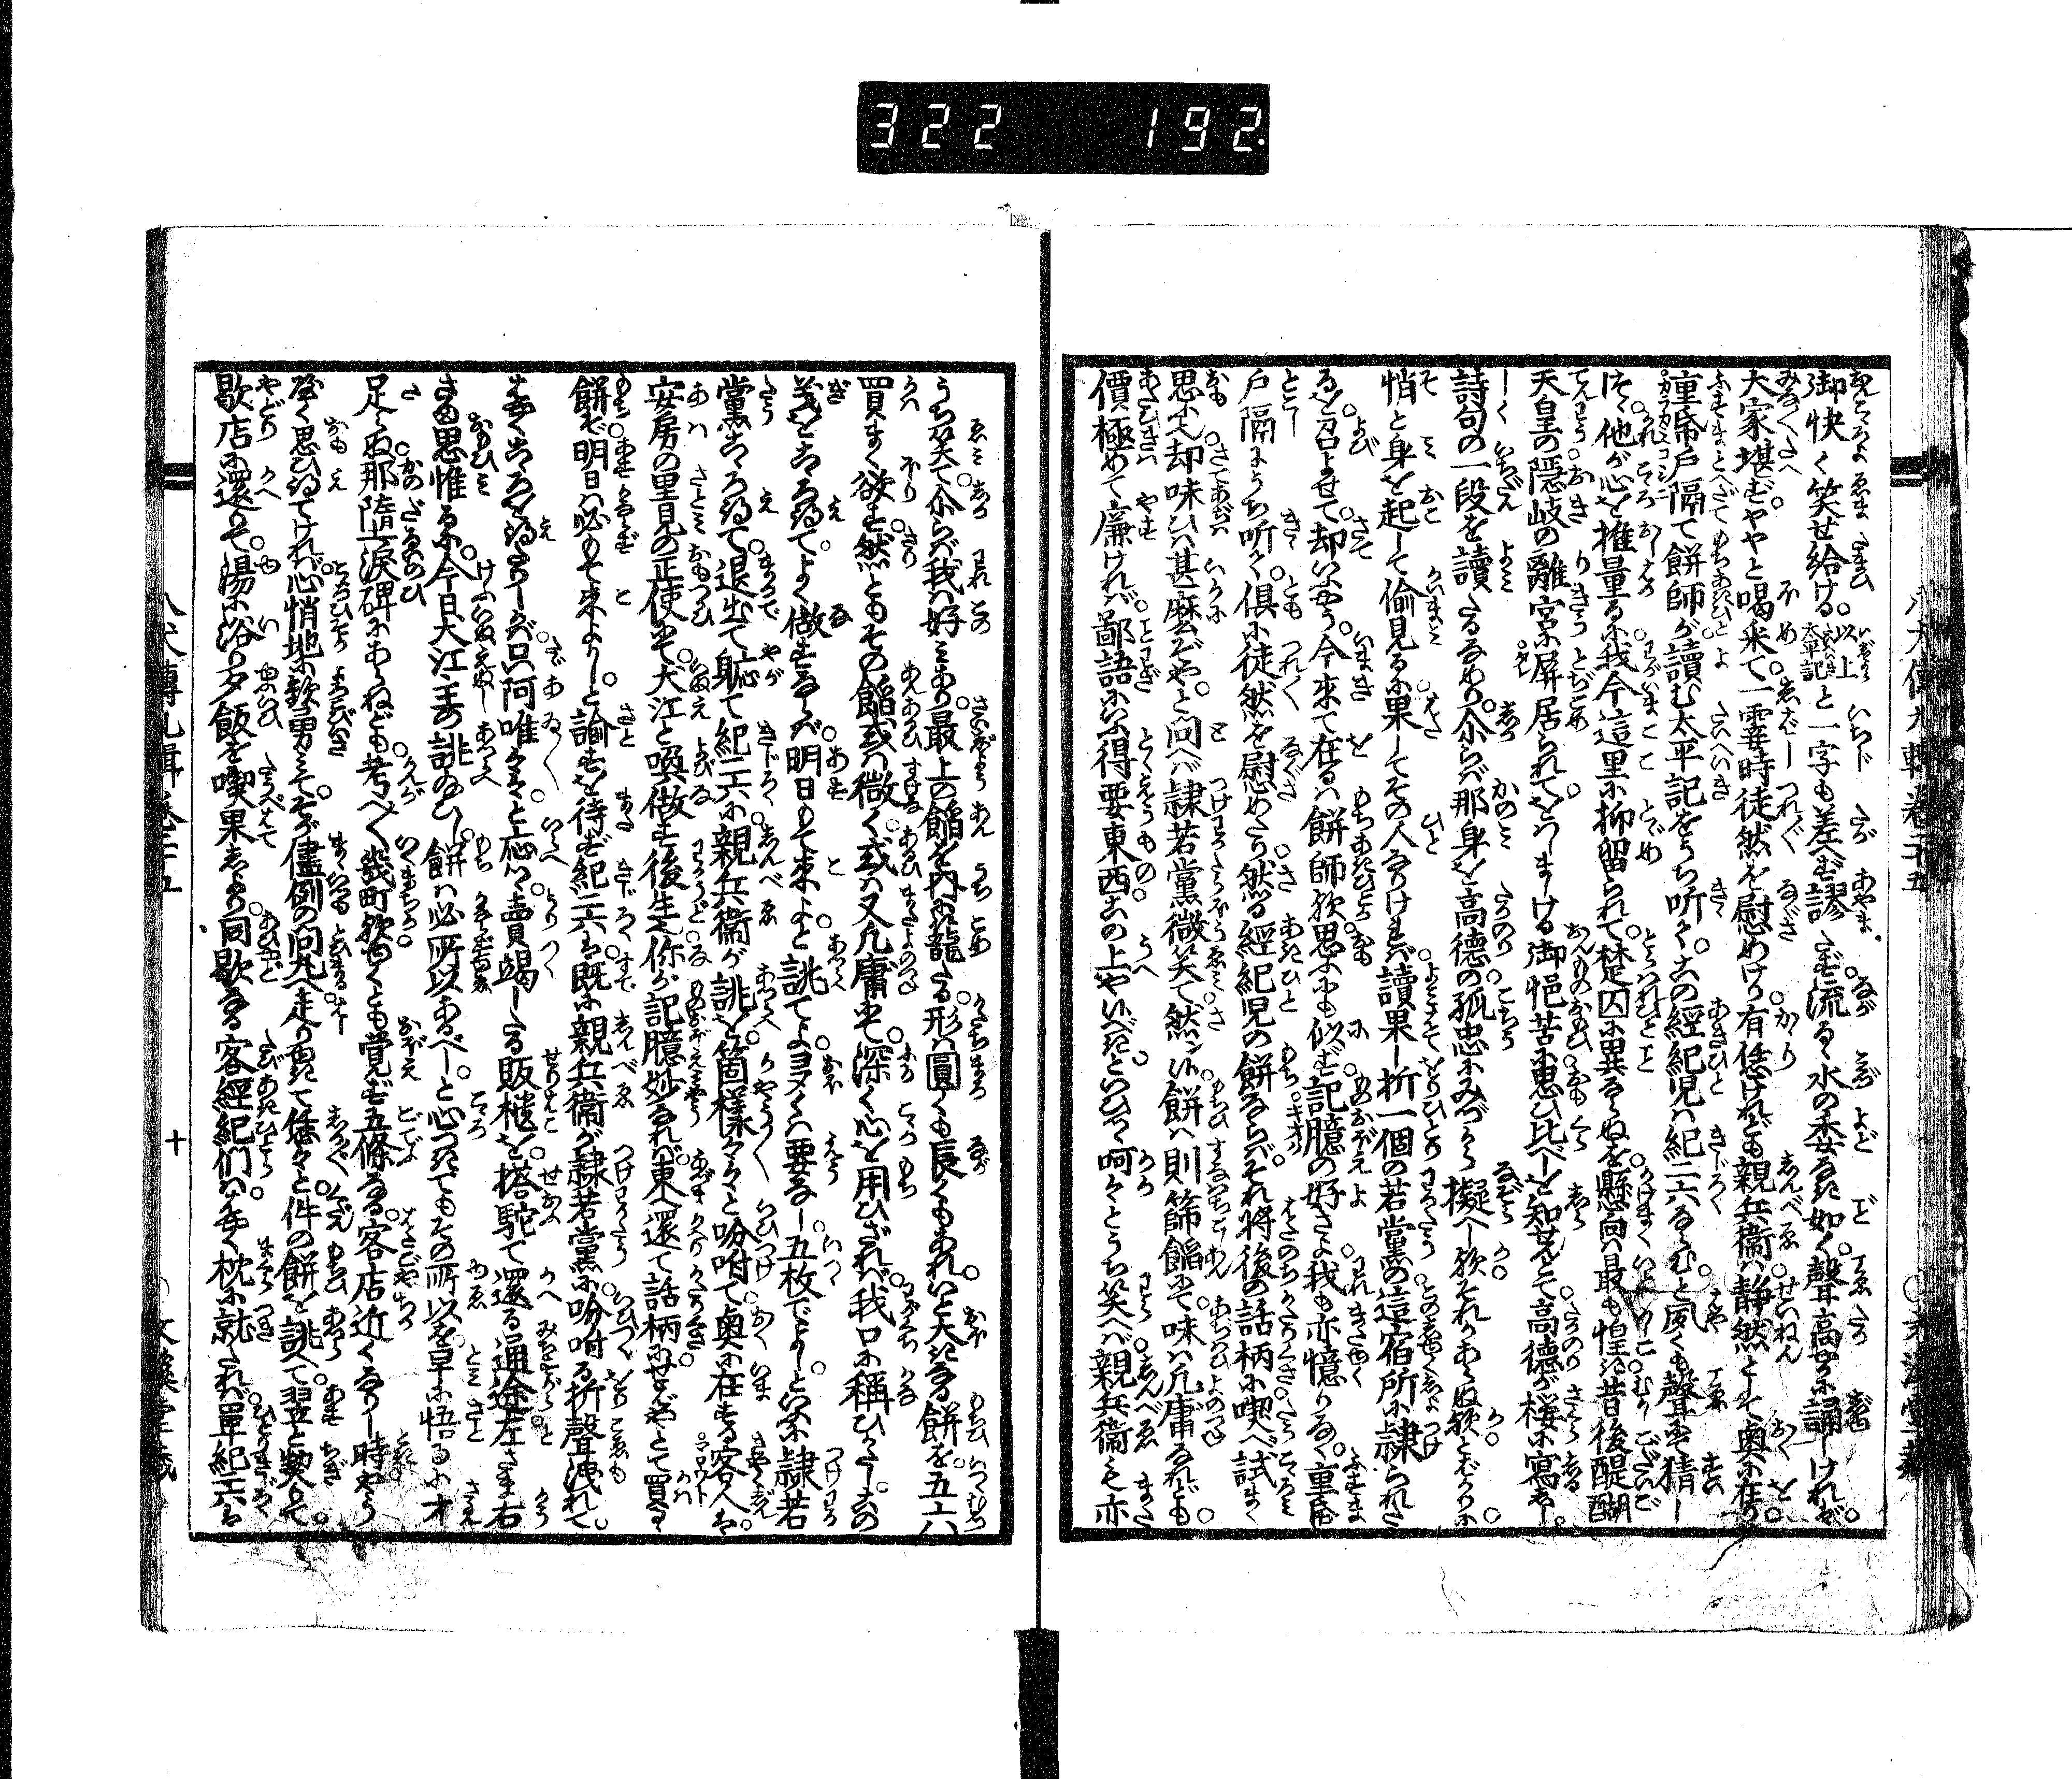 322 192
八犬傳九輯卷二十五
御快く笑せ給ける。以上太平記と一字も差へず謬たず流るゝ水の委なき如く。聲高やかに誦しければ。
大家堪ずややと喝采て一霎時徒然を慰めけり。有恁けれども親兵衛は静然として奥に在り。
重帋戸隔て餅師が讀む太平記をうち听く。この經紀児は紀二六ならむと夙くも聲音で猜し
つゝ他が心を推量るに我今這里に抑留られて。楚囚に異ならぬを懸向は最も惶き昔後醍醐
天皇の隠岐の離宮に屏居られてをはしまける御悒苦に思ひ比べしを知せんとて高徳が桜に寫しゝ
詩句の一段を讀たるなめり。尒らば那身を高徳の孤忠にみづから擬へし歟それかあらぬ歟とばかりに
悄と身を起して偸見るに果してその人なりければ讀果し折一個の若黨の這宿所に隷られた
るを召よせて。却いふやう。今来て在るは餅師歟。思ふにも似ず記臆の好さよ我も亦憶りなく重帋
戸隔にうち听く。倶に徒然を慰めたり然る經紀児の餅ならば。それ將後の話柄に喫べ試まく
思ふ却味ひは甚麼ぞやと問へば隷若黨微笑て然ン候餅は則篩餡にて味は凡庸なれども
價極めて廉ければ。鄙語にいふ得要東西この上やいべきといひつゝ呵々とうち笑へば親兵衛も亦
うち笑て尒らば我は好みあり。最上の餡を内に籠たる形は圓くも長くもあれいと大きなる餅を五六
買まく欲す然ともその餡或は微く或は又凡庸にて。深く心を用ひざれば我口に稱ひがたし。この
義をこゝろ得てよく做すならば明日もて来よと誂てよヲヲくは要なし五枚でよしといふに隷若
黨こゝろ得て退出て軈て紀二六に親兵衛が誂を箇様々々と吩咐て奥に在する客人は。
安房の里見の正使にて。犬江と喚做す後生也你が記臆妙なれば東へ還て話柄にせばやとて買るゝ
餅ぞ明日は必もて来よかし。と諭すを待ず紀二六は既に親兵衛が隷若黨に吩咐る折聲洩れて。
はやくこゝろを得たりしかば只阿唯々々と応つゝ賣竭したる販樻を搭駝て還る通途左さま右
さま思惟るに。今日犬江主の誂給ひし餅は必所以あるべし。と心つきてもその所以を早に悟るに才
足らぬ那隋上涙碑にあらねども考へゆく幾町歟也くとも覚ず五條なる客店近くなりし時やう
やく思ひ得てければ心悄地に歡び勇みて。そが儘例の問丸へ走り夤て恁々と件の餅を誂へて翌と契りて
歇店に還りて。湯に浴り夕飯を喫果しより。同歇なる客經紀們ははやく枕に就たれば單紀二六は
八犬傳九輯卷二十五
十